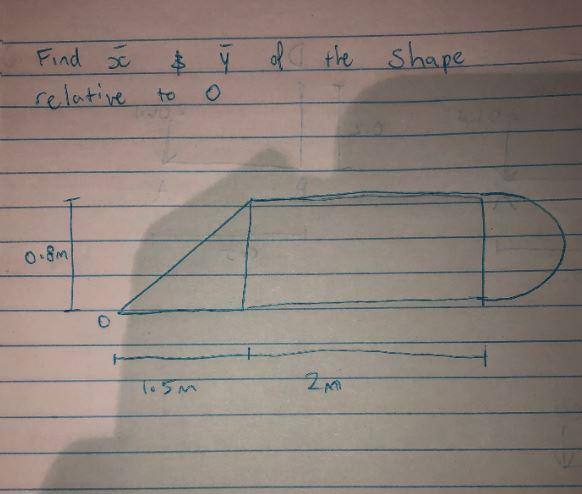 Find x̄ & ȳ of the Shape
relative to O
0.8m
O
1.5m
2m